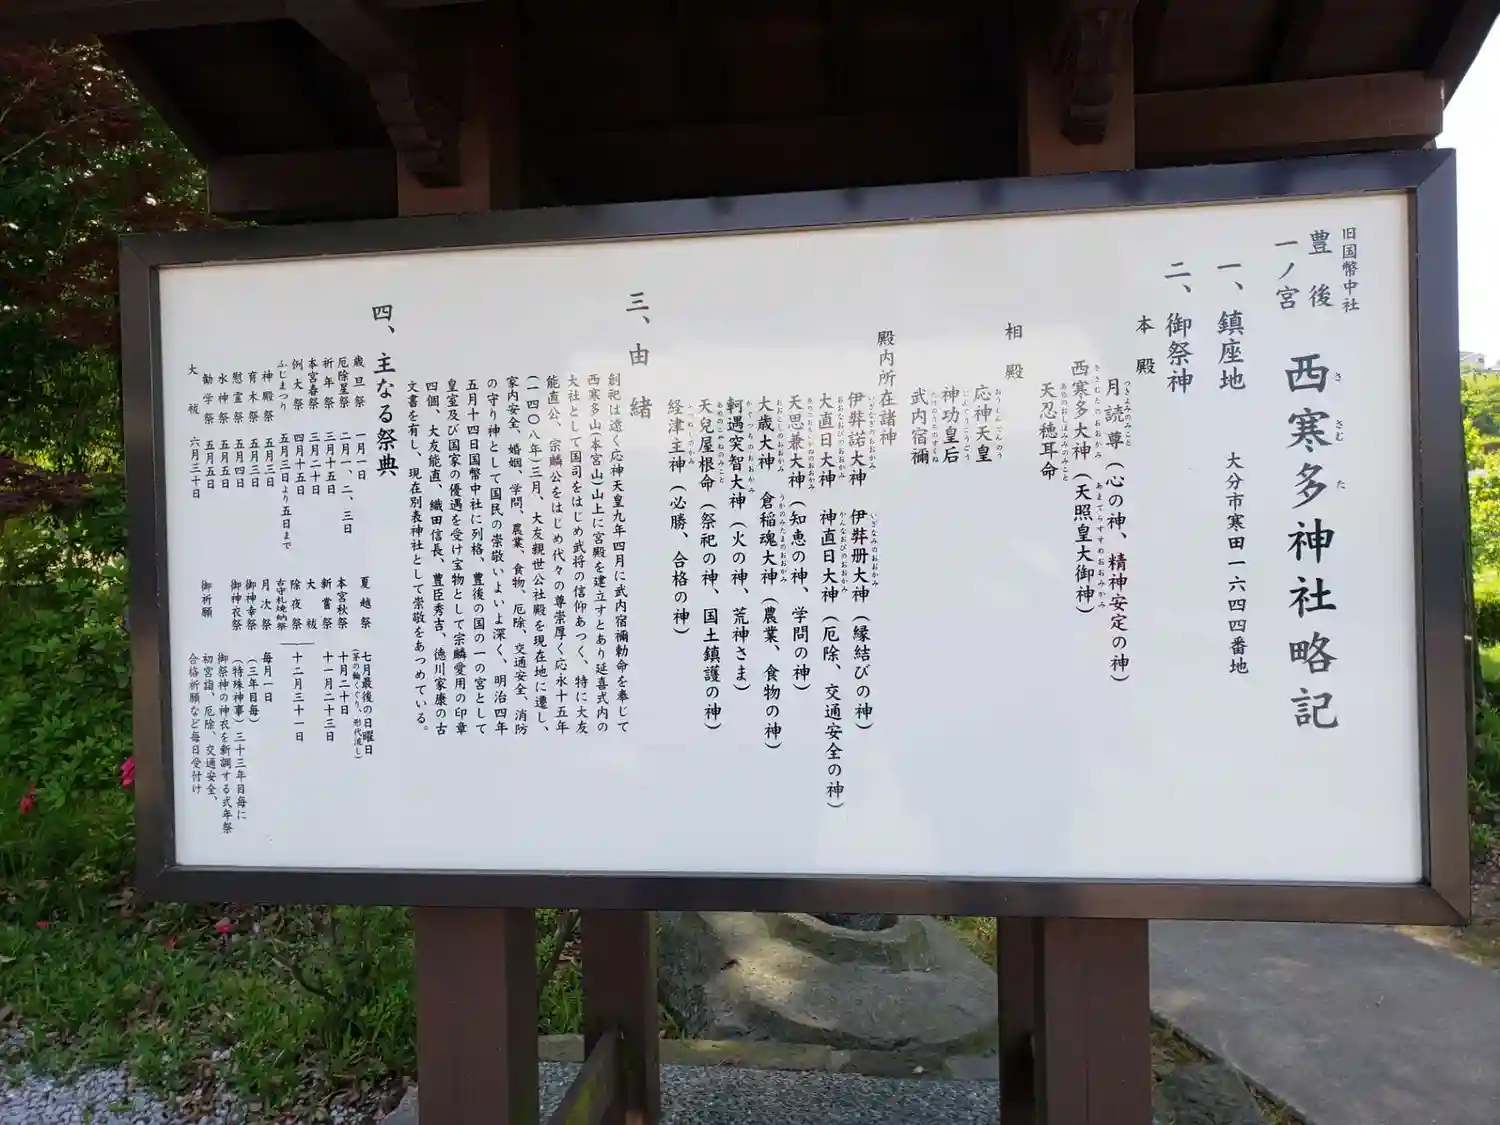 旧国幣中社
豊後
一ノ宮
西寒多神社略記
さ さむ た
一、鎮座地
大分市寒田一六四四番地
二、御祭神
本殿
月読尊（心の神、精神安定の神）
つきよみのみこと
西寒多大神（天照皇大御神）
ささむたのおおかみ あまてらすすめおおみかみ
天忍穂耳命
あめのおしほみみのみこと
相殿
応神天皇
おうじんてんのう
神功皇后
じんぐうこうごう
武内宿禰
たけのうちのすくね
殿内所在諸神
伊弉諾大神 伊弉册大神（縁結びの神）
いざなぎのおおかみ いざなみのおおかみ
大直日大神 神直日大神（厄除、交通安全の神）
おおなおびのおおかみ かんなおびのおおかみ
天思兼大神（知恵の神、学問の神）
大歳大神 倉稲魂大神（農業、食物の神）
おおとしのおおかみ うかのみたまのおおかみ
軻遇突智大神（火の神、荒神さま）
かぐつちのおおかみ
天兒屋根命（祭祀の神、国土鎮護の神）
あめのこやねのみこと
経津主神（必勝、合格の神）
ふつぬしのかみ
三、由緒
創祀は遠く応神天皇九年四月に武内宿禰勅命を奉じて
西寒多山（本宮山）山上に宮殿を建立すとあり延喜式内の
大社として国司をはじめ武将の信仰あつく、特に大友
能直公、宗麟公をはじめ代々の尊崇厚く応永十五年
（一四〇八年）三月、大友親世公社殿を現在地に遷し、
家内安全、婚姻、学問、農業、食物、厄除、交通安全、消防
の守り神として国民の崇敬いよいよ深く、明治四年
五月十四日国幣中社に列格、豊後の国の一の宮として
皇室及び国家の優遇を受け宝物として宗麟愛用の印章
四個、大友能直、織田信長、豊臣秀吉、徳川家康の古
文書を有し、現在別表神社として崇敬をあつめている。
四、主なる祭典
歳旦祭 一月一日
厄除星祭 二月一、二、三日
祈年祭 三月十五日
本宮春祭 三月二十日
例大祭 四月十五日
ふじまつり 五月三日より五日まで
神殿祭 五月三日
育木祭 五月三日
慰霊祭 五月四日
水神祭 五月五日
勧学祭 五月五日
大祓 六月三十日
夏越祭 七月最後の日曜日
（茅の輪くぐり、形代流し）
本宮秋祭 十月二十日
新嘗祭 十一月二十三日
大祓
除夜祭 十二月三十一日
古守札焼納祭
月次祭 毎月一日
御神幸祭 （三年目毎）
御神衣祭 （特殊神事）三十三年目毎に
御祭神の神衣を新調する式年祭
御祈願 初宮詣、厄除、交通安全、
合格祈願など毎日受付け